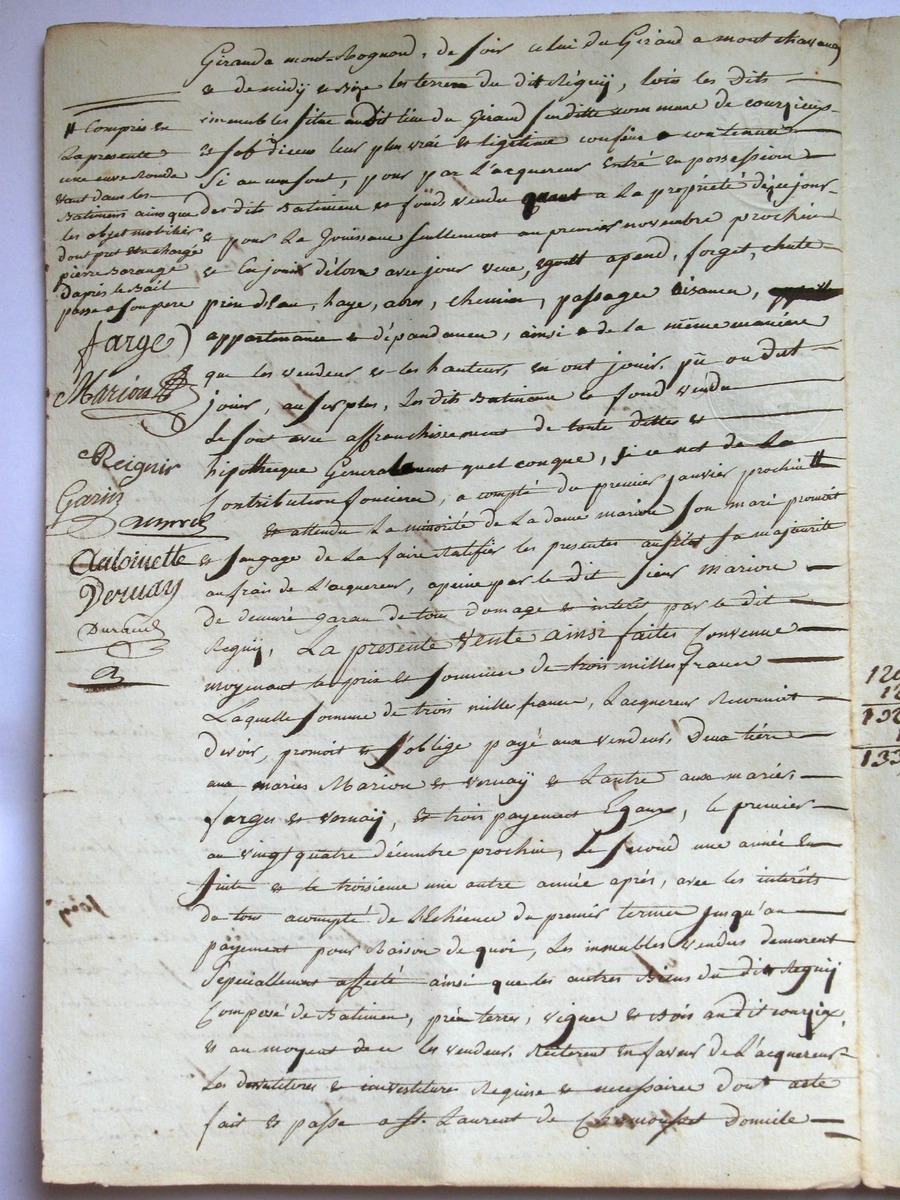 Giraud a mont-Rognard, de soir celui du Giraud a mont chavanay
& de midy & Bize les terres du dit Réguy, tous les dits
immeubles situé audit lieu du Giraud susditte commune de courzieux
& sof dieux leur plus vrai & légitime confins & contenue
si aucun sont, pour par L'acquereur Entré en possession
des dits Batiments & fonds vendu quant a La propriété dèçe jour
& pour La Jouissance seullement au premier novembre prochin
& En jouir délors avec jour vue, égoutt apend, forget, chute
prin d'Eau, haye, abre, chemin, passages aisances,
appartenance & dépandances, ainsi & de la même manière
que les vendeurs & les hauteurs, en ont jouir, pû ou dut
jouir, au surplus, Les dits Batimens & fond vendu
Le sont avec affranchissement de toute dettes &
hipothèque Generalement quelconque, si ce n'est de La
Contribution foncière, a compté du premier janvier prochin //
& attendu La minorité de La dame marion son mari promoit
& s'angage de La faire Ratifier les presentes aussitôt sa majorité
au frais de L'acquereur, apeine par le dit sieur Marion
de demuré garan de tous domage & intérêt par le dit
Reguy, La presente Vente ainsi faites Convenue
moyenant le prix & sommes de trois milles francs
Laquelle somme de trois mille francs, L'acquereur Reconnoit
devoir, promoit & s'oblige payé aux vendeur, Deux tière
aux mariés Marion & Vernay & L'autre aux mariés
farges & vernaÿ, & trois payement Egaux, le premier
au vingt quatre décembre prochin, Le second une année En
suite & le troisieme une autre année après, avec les intérêts
du tout acompté de L'échéence du premier terme jusqu'au
payement pour Raison de quoi, Les immeubles vendus demurent
spécialement affecté ainsi que les autres Biens du dit Reguy
Composé de Batimen, prés terres, vignes & Bois audit courzieux,
& au moyent de ce les vendeurs, Secterent en faveur de L'acquereur
Les devestitures & investitures Requise & necessaires dont acte
fait & passe a St. Laurent de Chamousset Domicile
// Compris en
La presente
une cuve Ronde
étant dans les
Batimens ainsi que
les objet mobiliers
dont pret est chargé
pierre Barange
d'après le Bail
passe a son pere
farge
Marion
Reignir
Garin
Antoinette
Vernay
Durand
120
12
132
1
133